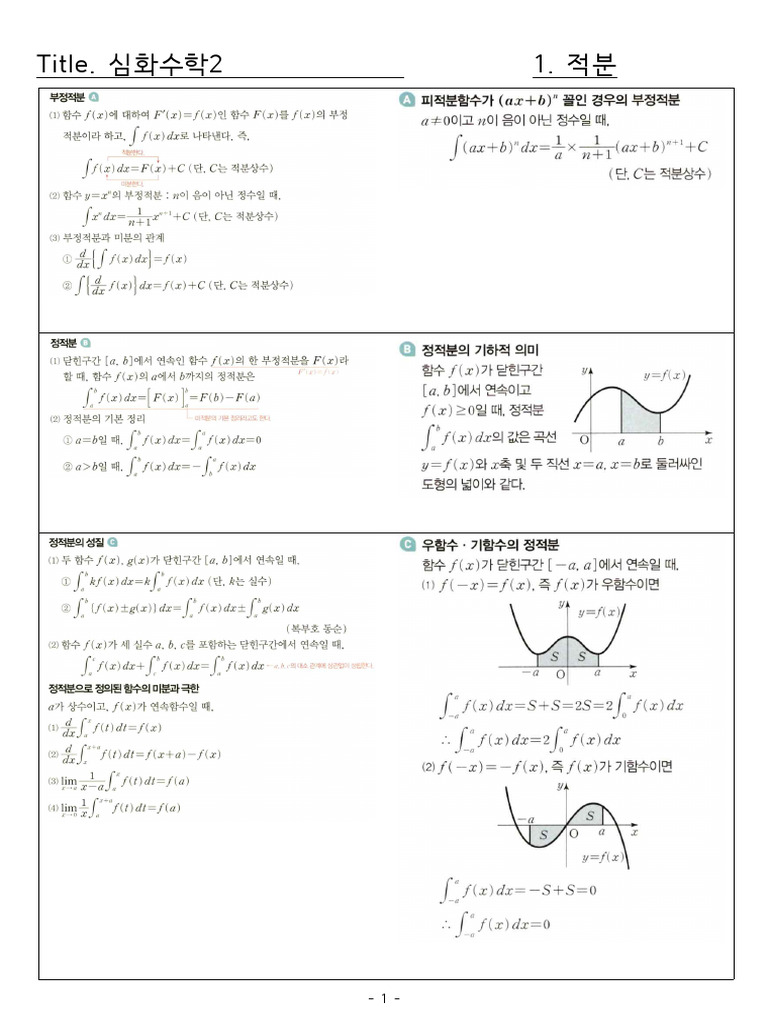 Title. 심화수학2 1. 적분
부정적분 A
(1) 함수 f(x)에 대하여 F′(x)=f(x)인 함수 F(x)를 f(x)의 부정
적분이라 하고, ∫f(x)dx로 나타낸다. 즉,
적분한다.
∫f(x)dx=F(x)+C (단, C는 적분상수)
미분한다.
(2) 함수 y=xⁿ의 부정적분 : n이 음이 아닌 정수일 때,
∫xⁿdx=1/(n+1) xⁿ⁺¹+C (단, C는 적분상수)
(3) 부정적분과 미분의 관계
① d/dx{∫f(x)dx}=f(x)
② ∫{d/dx f(x)}dx=f(x)+C (단, C는 적분상수)
A 피적분함수가 (ax+b)ⁿ 꼴인 경우의 부정적분
a≠0이고 n이 음이 아닌 정수일 때,
∫(ax+b)ⁿdx=1/a×1/(n+1)(ax+b)ⁿ⁺¹+C
(단, C는 적분상수)
정적분 B
(1) 닫힌구간 [a, b]에서 연속인 함수 f(x)의 한 부정적분을 F(x)라
F′(x)=f(x)
할 때, 함수 f(x)의 a에서 b까지의 정적분은
∫_a^b f(x)dx=[F(x)]_a^b=F(b)-F(a)
(2) 정적분의 기본 정리
① a=b일 때, ∫_a^b f(x)dx=∫_a^a f(x)dx=0
② a>b일 때, ∫_a^b f(x)dx=-∫_b^a f(x)dx
B 정적분의 기하적 의미
함수 f(x)가 닫힌구간
[a, b]에서 연속이고
f(x)≥0일 때, 정적분
∫_a^b f(x)dx의 값은 곡선
y=f(x)와 x축 및 두 직선 x=a, x=b로 둘러싸인
도형의 넓이와 같다.
y
y=f(x)
O a b x
정적분의 성질 C
(1) 두 함수 f(x), g(x)가 닫힌구간 [a, b]에서 연속일 때,
① ∫_a^b kf(x)dx=k∫_a^b f(x)dx (단, k는 실수)
② ∫_a^b {f(x)±g(x)}dx=∫_a^b f(x)dx±∫_a^b g(x)dx
(복부호 동순)
(2) 함수 f(x)가 세 실수 a, b, c를 포함하는 닫힌구간에서 연속일 때,
∫_a^c f(x)dx+∫_c^b f(x)dx=∫_a^b f(x)dx a, b, c의 대소 관계에 상관없이 성립한다.
정적분으로 정의된 함수의 미분과 극한
a가 상수이고, f(x)가 연속함수일 때,
(1) d/dx∫_a^x f(t)dt=f(x)
(2) d/dx∫_x^{x+a} f(t)dt=f(x+a)-f(x)
(3) lim_{x→a} 1/(x-a)∫_a^x f(t)dt=f(a)
(4) lim_{x→0} 1/x∫_a^{x+a} f(t)dt=f(a)
C 우함수·기함수의 정적분
함수 f(x)가 닫힌구간 [-a, a]에서 연속일 때,
(1) f(-x)=f(x), 즉 f(x)가 우함수이면
y
y=f(x)
S S
-a O a x
∫_{-a}^a f(x)dx=S+S=2S=2∫_0^a f(x)dx
∴ ∫_{-a}^a f(x)dx=2∫_0^a f(x)dx
(2) f(-x)=-f(x), 즉 f(x)가 기함수이면
y
-a S
S O a x
y=f(x)
∫_{-a}^a f(x)dx=-S+S=0
∴ ∫_{-a}^a f(x)dx=0
- 1 -